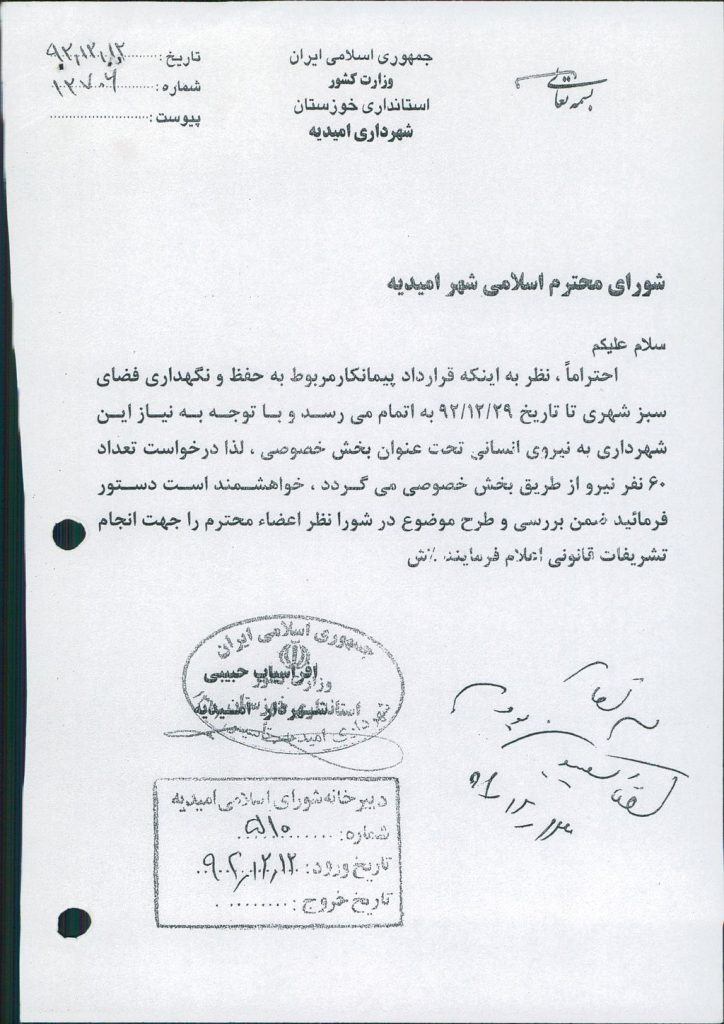 بسمه تعالی
جمهوری اسلامی ایران
وزارت کشور
استانداری خوزستان
شهرداری امیدیه
تاریخ : ۹۲،۱۲،۱۲
شماره : ۱۲۷۰۶
پیوست :
شورای محترم اسلامی شهر امیدیه
سلام علیکم
احتراماً ، نظر به اینکه قرارداد پیمانکارمربوط به حفظ و نگهداری فضای
سبز شهری تا تاریخ ۹۲/۱۲/۲۹ به اتمام می رسد و با توجه به نیاز این
شهرداری به نیروی انسانی تحت عنوان بخش خصوصی ، لذا درخواست تعداد
۶۰ نفر نیرو از طریق بخش خصوصی می گردد ، خواهشمند است دستور
فرمائید ضمن بررسی و طرح موضوع در شورا نظر اعضاء محترم را جهت انجام
تشریفات قانونی اعلام فرمایند
جمهوری اسلامی ایران
افراسیاب حبیبی
وزارت کشور
استانداری خوزستان
شهردار امیدیه
دبیرخانه شورای اسلامی امیدیه
شماره: ۵۱۰
تاریخ ورود: ۹۲،۱۲،۱۲
تاریخ خروج :